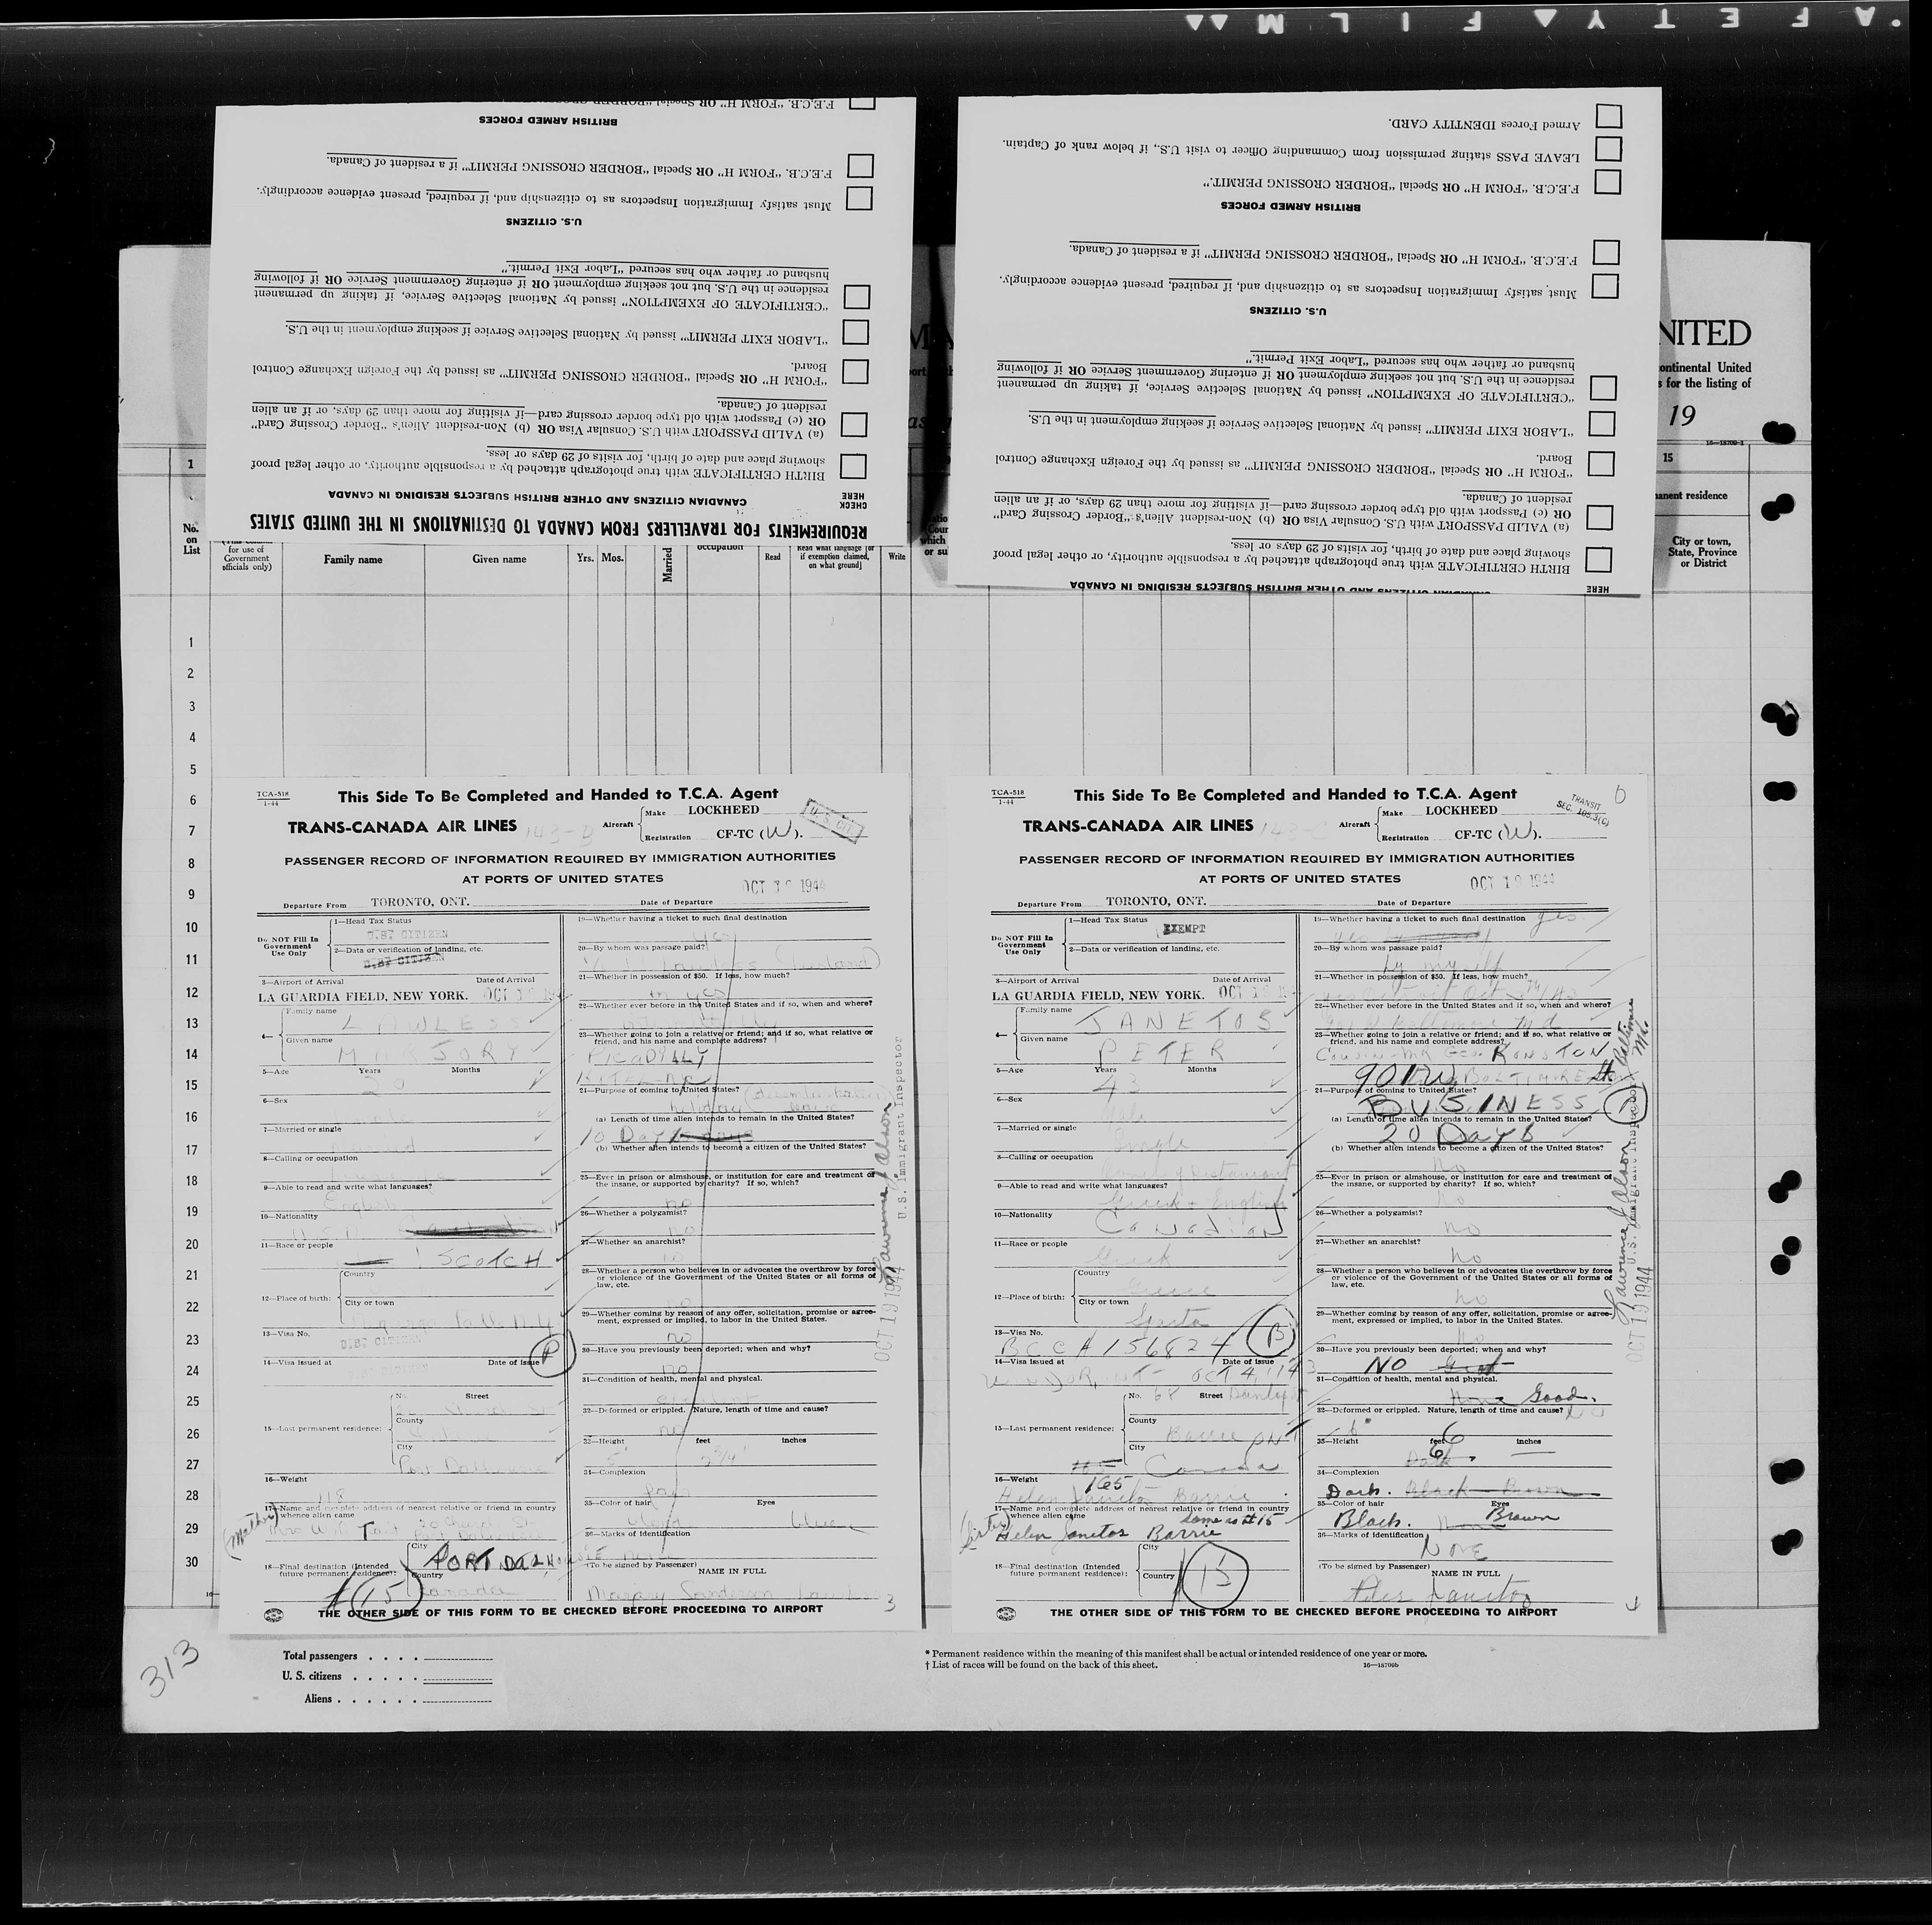 SAFETY FILM
REQUIREMENTS FOR TRAVELLERS FROM CANADA TO DESTINATIONS IN THE UNITED STATES
CHECK HERE
CANADIAN CITIZENS AND OTHER BRITISH SUBJECTS RESIDING IN CANADA
BIRTH CERTIFICATE with true photograph attached by a responsible authority, or other legal proof
showing place and date of birth, for visits of 29 days or less.
(a) VALID PASSPORT with U.S. Consular Visa OR (b) Non-resident Alien's "Border Crossing Card"
OR (c) Passport with old type border crossing card—if visiting for more than 29 days, or if an alien
resident of Canada.
"FORM H" OR Special "BORDER CROSSING PERMIT" as issued by the Foreign Exchange Control
Board.
"LABOR EXIT PERMIT" issued by National Selective Service if seeking employment in the U.S.
"CERTIFICATE OF EXEMPTION" issued by National Selective Service, if taking up permanent
residence in the U.S. but not seeking employment OR if entering Government Service OR if following
husband or father who has secured "Labor Exit Permit."
U.S. CITIZENS
Must satisfy Immigration Inspectors as to citizenship and, if required, present evidence accordingly.
F.E.C.B. "FORM H" OR Special "BORDER CROSSING PERMIT" if a resident of Canada.
BRITISH ARMED FORCES
F.E.C.B. "FORM H" OR Special "BORDER CROSSING
HERE
CANADIAN CITIZENS AND OTHER BRITISH SUBJECTS RESIDING IN CANADA
BIRTH CERTIFICATE with true photograph attached by a responsible authority, or other legal proof
showing place and date of birth, for visits of 29 days or less.
(a) VALID PASSPORT with U.S. Consular Visa OR (b) Non-resident Alien's "Border Crossing Card"
OR (c) Passport with old type border crossing card—if visiting for more than 29 days, or if an alien
resident of Canada.
"FORM H" OR Special "BORDER CROSSING PERMIT" as issued by the Foreign Exchange Control
Board.
"LABOR EXIT PERMIT" issued by National Selective Service if seeking employment in the U.S.
"CERTIFICATE OF EXEMPTION" issued by National Selective Service, if taking up permanent
residence in the U.S. but not seeking employment OR if entering Government Service OR if following
husband or father who has secured "Labor Exit Permit."
U.S. CITIZENS
Must satisfy Immigration Inspectors as to citizenship and, if required, present evidence accordingly.
F.E.C.B. "FORM H" OR Special "BORDER CROSSING PERMIT" if a resident of Canada.
BRITISH ARMED FORCES
F.E.C.B. "FORM H" OR Special "BORDER CROSSING PERMIT."
LEAVE PASS stating permission from Commanding Officer to visit U.S., if below rank of Captain.
Armed Forces IDENTITY CARD.
NITED
ontinental United
s for the listing of
19
16—18709-1
1
15
anent residence
No. on List
for use of Government officials only)
Family name
Given name
Yrs. Mos.
Married
occupation
Read
Read what language [or if exemption claimed, on what ground]
Write
City or town, State, Province or District
1
2
3
4
5
6
7
8
9
10
11
12
13
14
15
16
17
18
19
20
21
22
23
24
25
26
27
28
29
30
TCA-518
1-44
This Side To Be Completed and Handed to T.C.A. Agent
TRANS-CANADA AIR LINES
143-B
Aircraft
Make LOCKHEED
Registration CF-TC (W).
U.S. CIT
PASSENGER RECORD OF INFORMATION REQUIRED BY IMMIGRATION AUTHORITIES
AT PORTS OF UNITED STATES
OCT 19 1944
Departure From TORONTO, ONT. Date of Departure
Do NOT Fill In Government Use Only
1—Head Tax Status
U.S. CITIZEN
2—Data or verification of landing, etc.
U.S. CITIZEN
3—Airport of Arrival Date of Arrival
LA GUARDIA FIELD, NEW YORK. OCT 19
4—
Family name
LAWLESS
Given name
MARJORY
5—Age Years Months
6—Sex
7—Married or single
8—Calling or occupation
9—Able to read and write what languages?
English
10—Nationality
11—Race or people
SCOTCH
12—Place of birth:
Country
City or town
Niagara Falls N.Y.
13—Visa No.
U.S. CITIZEN
14—Visa issued at Date of issue
P
15—Last permanent residence:
No. Street
County
City
Port Dalhousie
16—Weight
118
17—Name and complete address of nearest relative or friend in country whence alien came
(Mother)
18—Final destination (Intended future permanent residence):
City
PORT DALHOUSIE
Country
Canada
15
19—Whether having a ticket to such final destination
yes
20—By whom was passage paid?
(Husband)
21—Whether in possession of $50. If less, how much?
yes
22—Whether ever before in the United States and if so, when and where?
23—Whether going to join a relative or friend; and if so, what relative or friend, and his name and complete address?
PICADILLY
24—Purpose of coming to United States?
holiday
(a) Length of time alien intends to remain in the United States?
10 Days
(b) Whether alien intends to become a citizen of the United States?
25—Ever in prison or almshouse, or institution for care and treatment of the insane, or supported by charity? If so, which?
no
26—Whether a polygamist?
no
27—Whether an anarchist?
no
28—Whether a person who believes in or advocates the overthrow by force or violence of the Government of the United States or all forms of law, etc.
no
29—Whether coming by reason of any offer, solicitation, promise or agreement, expressed or implied, to labor in the United States.
no
30—Have you previously been deported; when and why?
no
31—Condition of health, mental and physical.
excellent
32—Deformed or crippled. Nature, length of time and cause?
no
33—Height feet inches
5' 2 3/4"
34—Complexion
fair
35—Color of hair Eyes
blue
36—Marks of identification
none
(To be signed by Passenger) NAME IN FULL
3
Lawrence J. Olson
U.S. Immigrant Inspector
OCT 19 1944
THE OTHER SIDE OF THIS FORM TO BE CHECKED BEFORE PROCEEDING TO AIRPORT
TCA-518
1-44
This Side To Be Completed and Handed to T.C.A. Agent
TRANS-CANADA AIR LINES
Aircraft
Make LOCKHEED
Registration CF-TC (W).
TRANSIT
SEC. 105.3(C)
PASSENGER RECORD OF INFORMATION REQUIRED BY IMMIGRATION AUTHORITIES
AT PORTS OF UNITED STATES
OCT 19 1944
Departure From TORONTO, ONT. Date of Departure
Do NOT Fill In Government Use Only
1—Head Tax Status
EXEMPT
2—Data or verification of landing, etc.
3—Airport of Arrival Date of Arrival
LA GUARDIA FIELD, NEW YORK. OCT 19
4—
Family name
JANETOS
Given name
PETER
5—Age Years Months
43
6—Sex
Male
7—Married or single
Single
8—Calling or occupation
Restaurant
9—Able to read and write what languages?
Greek + English
10—Nationality
Canadian
11—Race or people
Greek
12—Place of birth:
Country
Greece
City or town
Sparta
13—Visa No.
BCCA 156824
B
14—Visa issued at Date of issue
WINDSOR, ONT- OCT 4, 1943
15—Last permanent residence:
No. 68 Street Dunlop
County
Barrie ON
City
Canada
16—Weight
165
Helen Janetos Barrie
17—Name and complete address of nearest relative or friend in country whence alien came
same as #15
(Sister)
Helen Janetos Barrie
18—Final destination (Intended future permanent residence):
City
Country
15
19—Whether having a ticket to such final destination yes
20—By whom was passage paid?
by myself
21—Whether in possession of $50. If less, how much?
22—Whether ever before in the United States and if so, when and where?
23—Whether going to join a relative or friend; and if so, what relative or friend, and his name and complete address?
Cousin - MR Geo. KONSTON
901 W. BALTIMORE St. Baltimore Md.
24—Purpose of coming to United States?
BUSINESS
(a) Length of time alien intends to remain in the United States?
20 Days
(b) Whether alien intends to become a citizen of the United States?
No
25—Ever in prison or almshouse, or institution for care and treatment of the insane, or supported by charity? If so, which?
No
26—Whether a polygamist?
No
27—Whether an anarchist?
No
28—Whether a person who believes in or advocates the overthrow by force or violence of the Government of the United States or all forms of law, etc.
No
29—Whether coming by reason of any offer, solicitation, promise or agreement, expressed or implied, to labor in the United States.
No
30—Have you previously been deported; when and why?
NO
31—Condition of health, mental and physical.
Good.
32—Deformed or crippled. Nature, length of time and cause? No
33—Height feet inches
6
34—Complexion
Dark.
35—Color of hair Eyes
Black. Brown
36—Marks of identification
NONE
(To be signed by Passenger) NAME IN FULL
Peter Janetos
Lawrence J. Olson
U.S. Immigrant Inspector
OCT 19 1944
THE OTHER SIDE OF THIS FORM TO BE CHECKED BEFORE PROCEEDING TO AIRPORT
313
Total passengers . . . .
U. S. citizens . . . . .
Aliens . . . . . .
* Permanent residence within the meaning of this manifest shall be actual or intended residence of one year or more.
† List of races will be found on the back of this sheet.
16—18709b